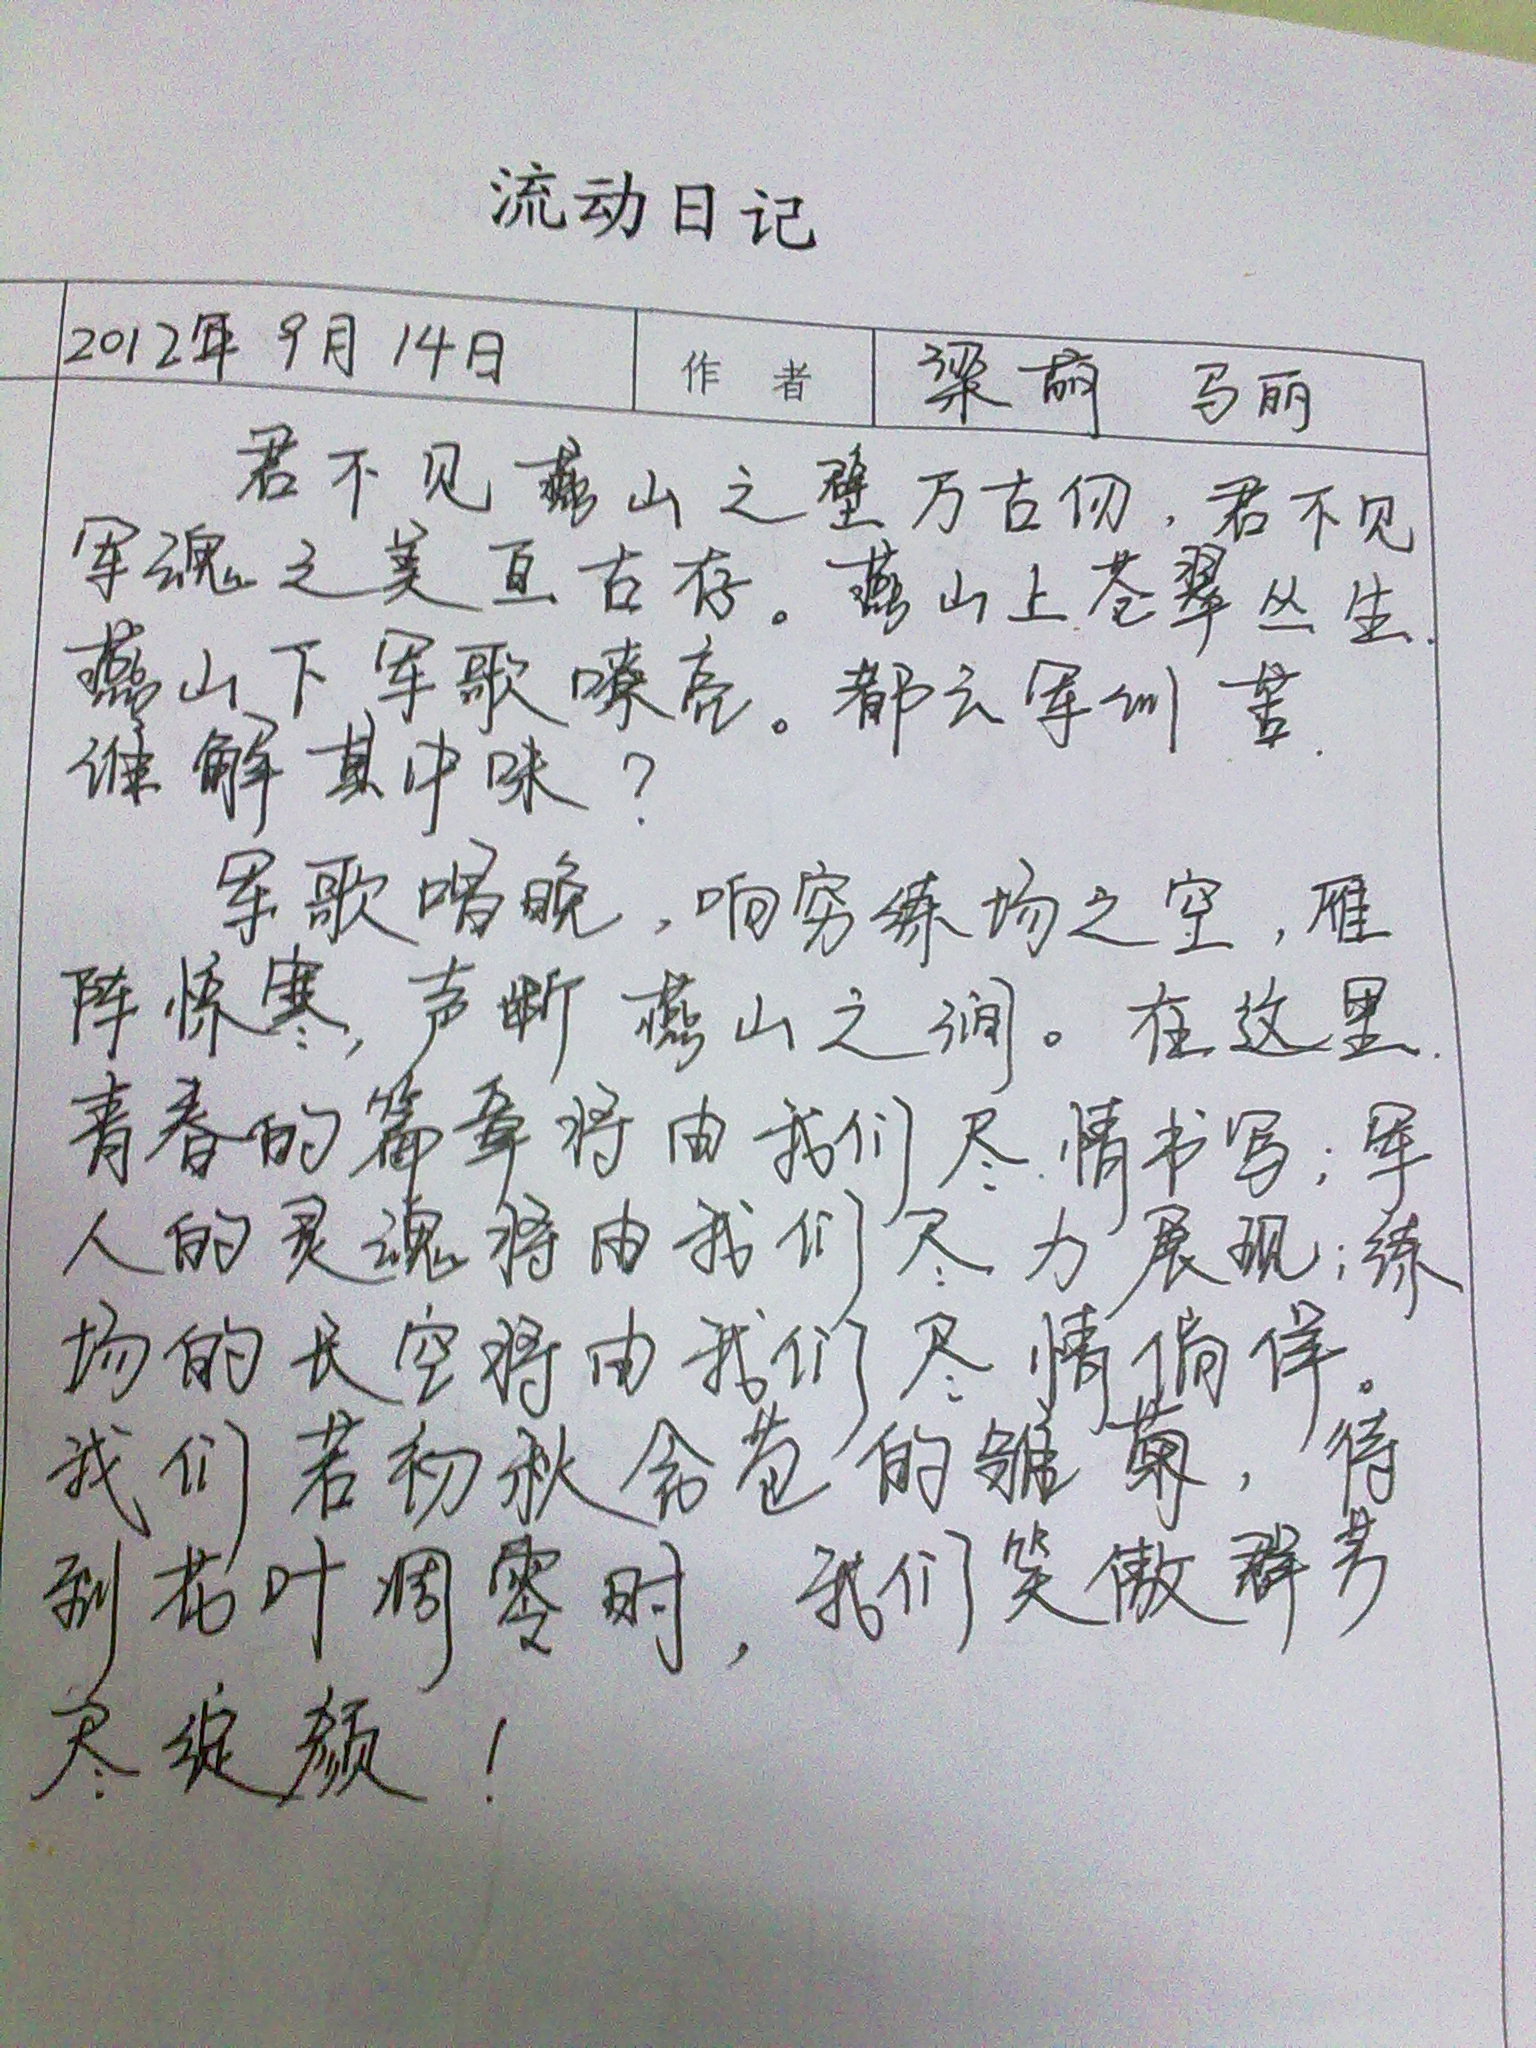 流动日记
2012年 9月 14日 作 者 梁萌 马丽
君不见燕山之壁万古仞,君不见
军魂之美亘古存。燕山上苍翠丛生.
燕山下军歌嘹亮。都云军训苦.
谁解其中味?
军歌唱晚,响穷练场之空,雁
阵惊寒,声断燕山之涧。在这里.
青春的篇章将由我们尽情书写;军
人的灵魂将由我们尽力展现;练
场的长空将由我们尽情徜徉。
我们若初秋含苞的雏菊,待
到花叶凋零时,我们笑傲群芳
尽绽颜!